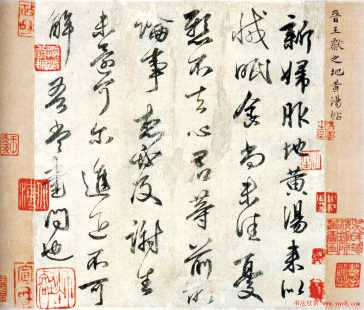 晉王獻之地黄湯帖
新婦服地黄湯来似
減眠食尚未佳憂
懸不去心君等前所
論事想必及謝生
未還可尔進退不可
解吾當書問也
书法欣赏
www.yac8.com